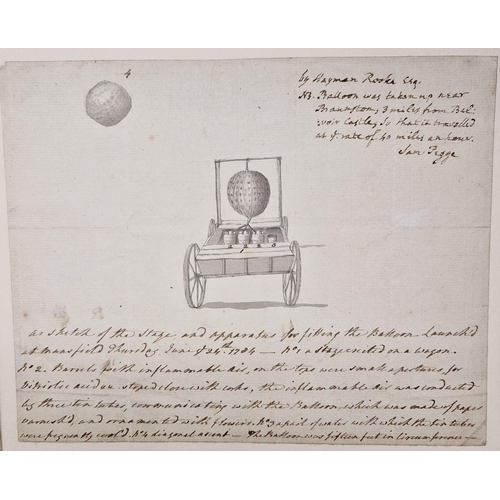 4
by Hayman Rooke Esq.
NB. Balloon was taken up near
Braunston, 3 miles from Bel-
voir Castle, So that it travelled
at ye. rate of 40 miles an hour.
Sam Pegge
a sketch of the Stage and apparatus for filling the Balloon Launch'd
at Mansfield Thursday June ye 24th. 1784 — No. 1 a Stage erected on a wagon.
No. 2. Barrels with inflammable air, on the tops were small apertures, for
Vitriolic acid &c stoped close with corks, the inflammable air was conducted
by three tin tubes, communicating with the Balloon which was made of paper
varnish'd, and ornamented with flowers. No. 3 a pail of water with which the tin tubes
were frequently cool'd. No. 4 diagonal ascent — The Balloon was fifteen feet in Circumference —